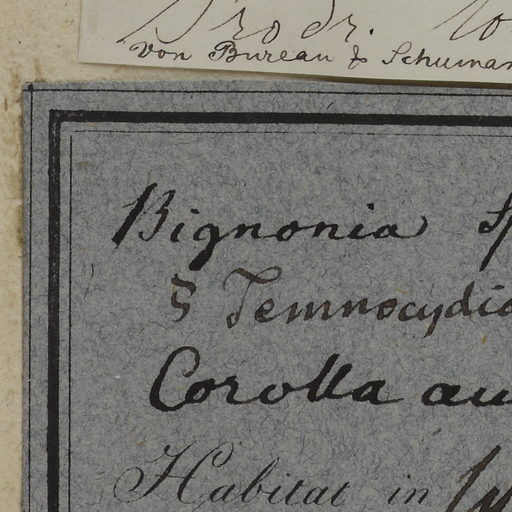 Prodr.
von Bureau & Schuman
Bignonia sp
§ Temnocydia
Corolla au
Habitat in